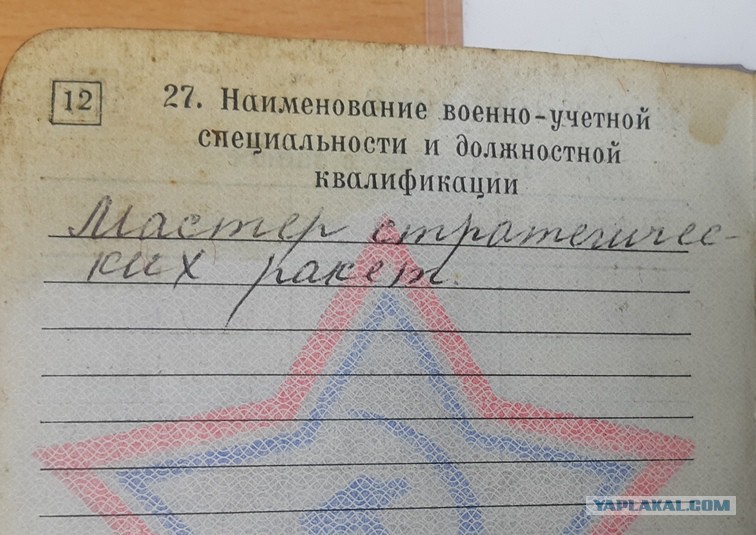 12
27. Наименование военно-учетной
специальности и должностной
квалификации
Мастер стратегичес-
ких ракет.
YAPLAKAL.COM